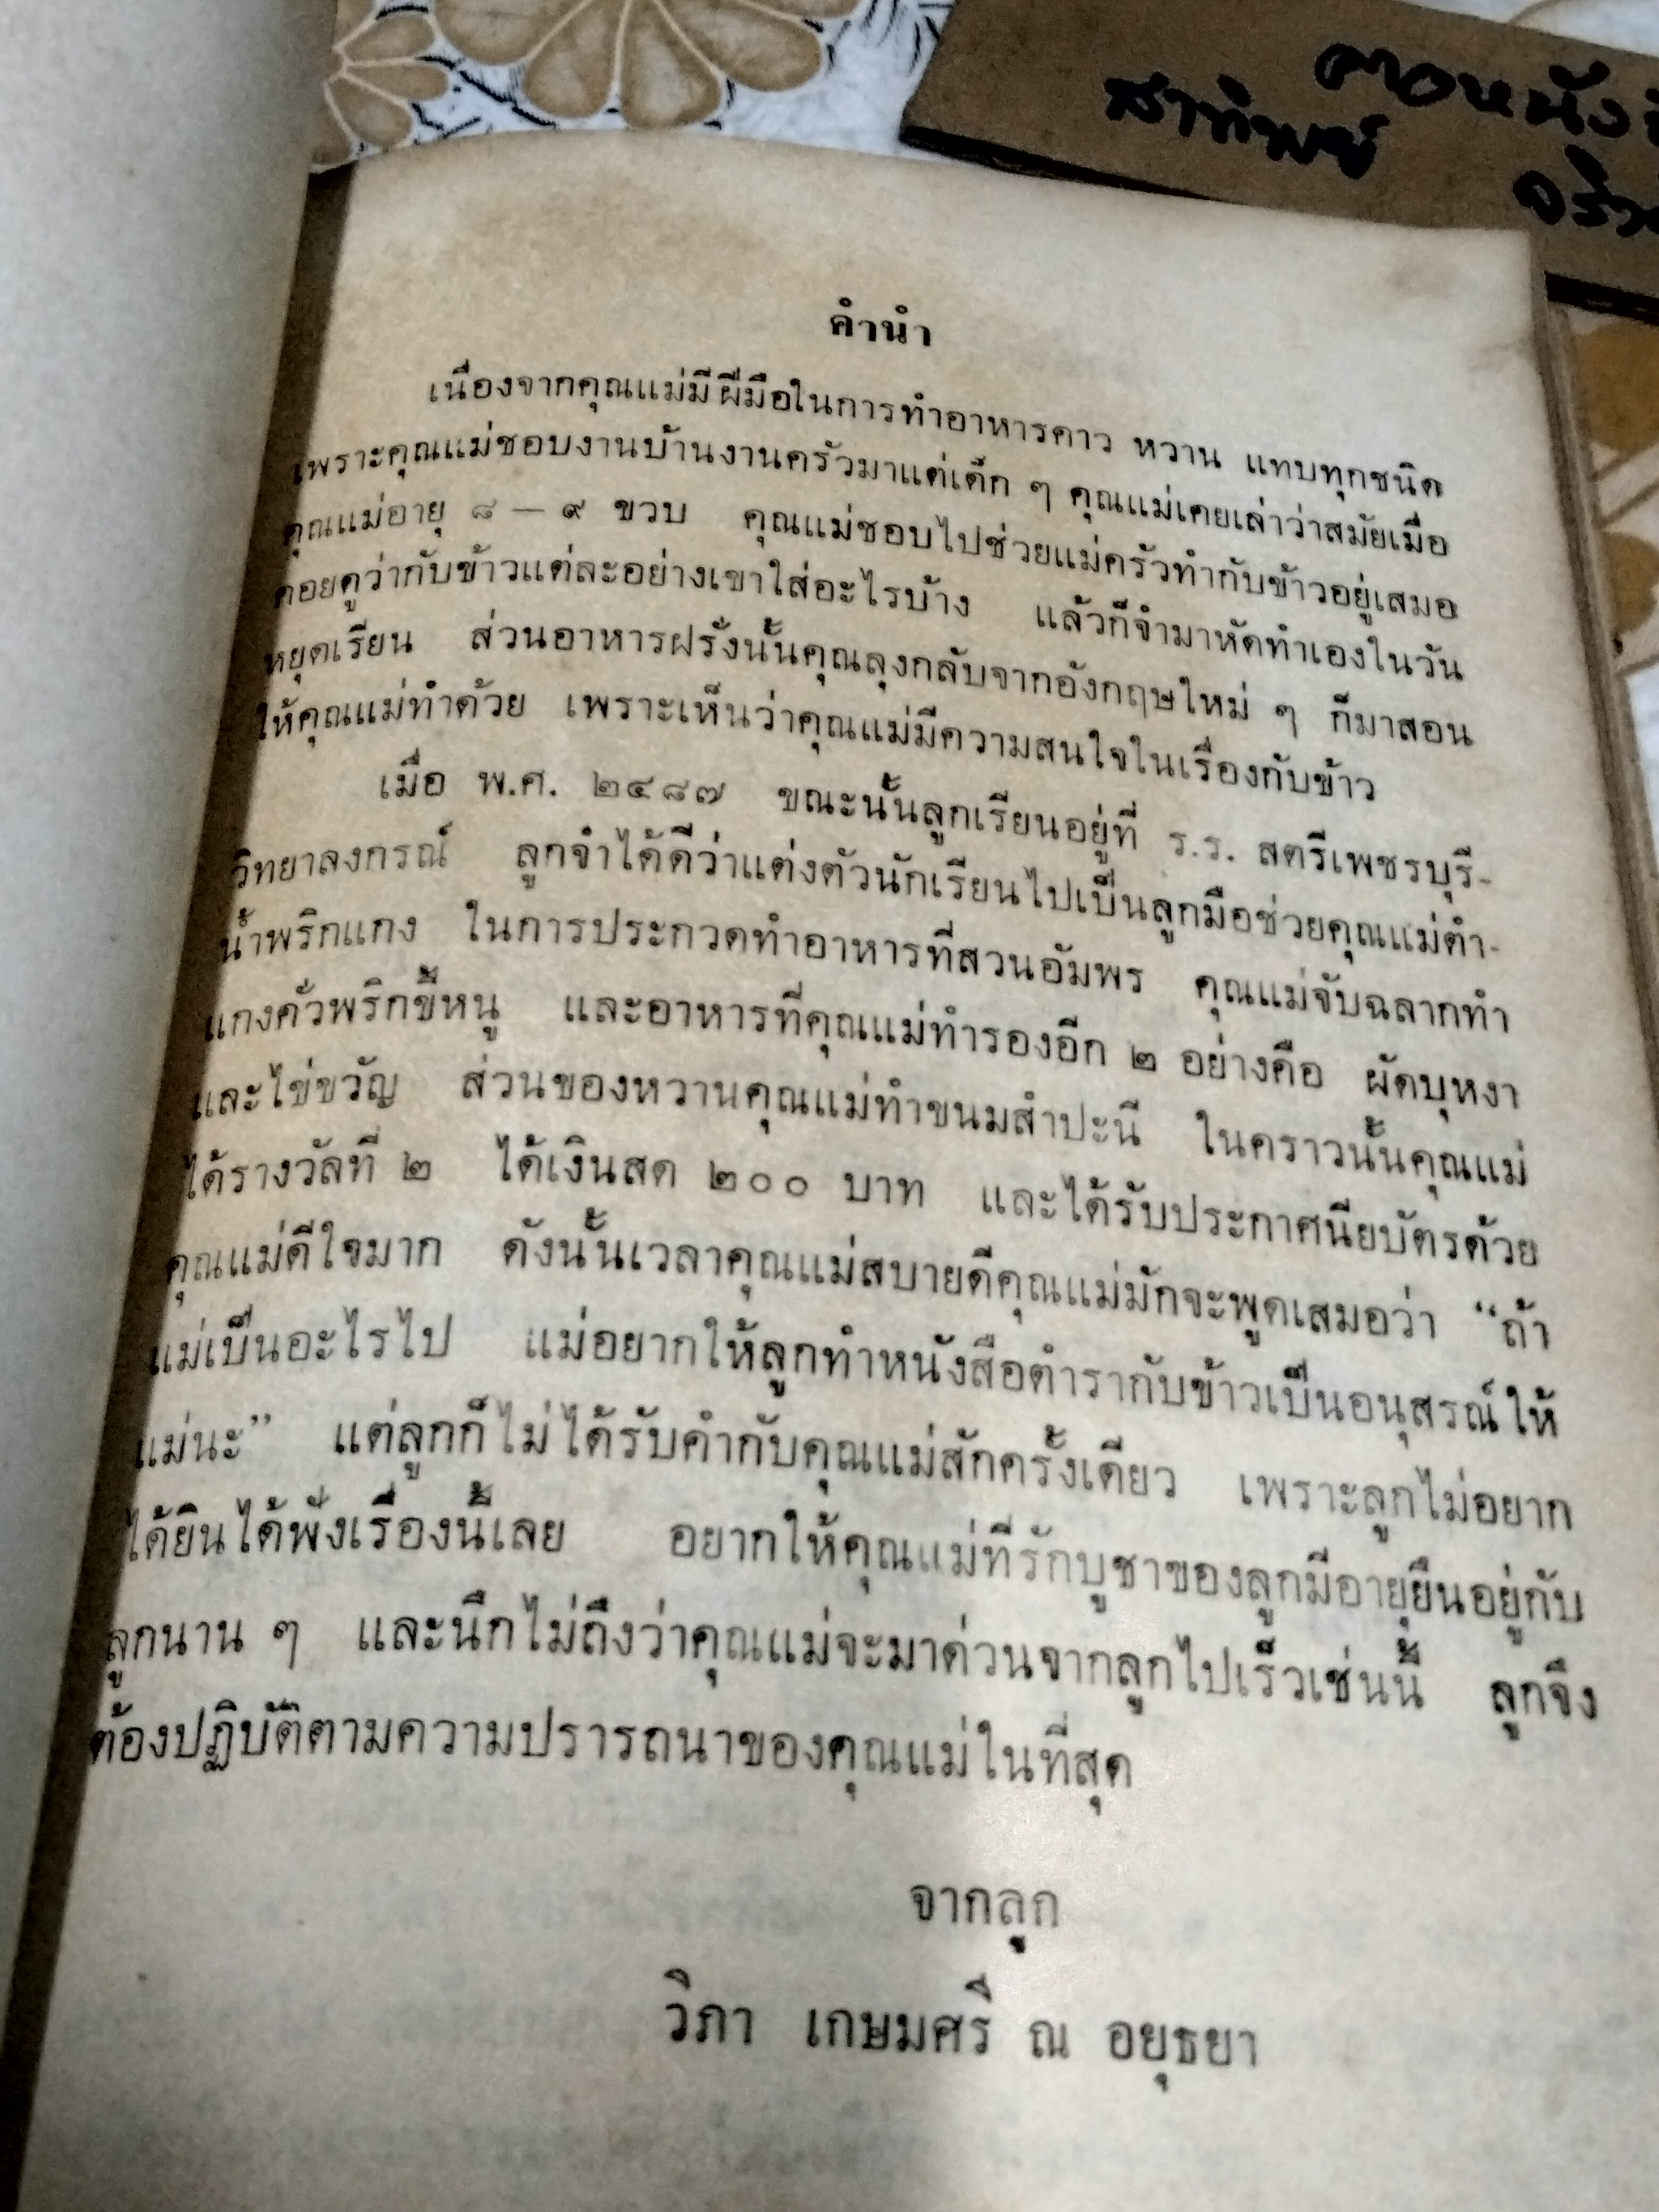 สาทิพย์
คำนำ
เนื่องจากคุณแม่มีฝีมือในการทำอาหารคาว หวาน แทบทุกชนิด
เพราะคุณแม่ชอบงานบ้านงานครัวมาแต่เด็ก ๆ คุณแม่เคยเล่าว่าสมัยเมื่อ
คุณแม่อายุ ๘ – ๙ ขวบ คุณแม่ชอบไปช่วยแม่ครัวทำกับข้าวอยู่เสมอ
คอยดูว่ากับข้าวแต่ละอย่างเขาใส่อะไรบ้าง แล้วก็จำมาหัดทำเองในวัน
หยุดเรียน ส่วนอาหารฝรั่งนั้นคุณลุงกลับจากอังกฤษใหม่ ๆ ก็มาสอน
ให้คุณแม่ทำด้วย เพราะเห็นว่าคุณแม่มีความสนใจในเรื่องกับข้าว
เมื่อ พ.ศ. ๒๔๘๗ ขณะนั้นลูกเรียนอยู่ที่ ร.ร. สตรีเพชรบุรี-
วิทยาลงกรณ์ ลูกจำได้ดีว่าแต่งตัวนักเรียนไปเป็นลูกมือช่วยคุณแม่ตำ-
น้ำพริกแกง ในการประกวดทำอาหารที่สวนอัมพร คุณแม่จับฉลากทำ
แกงคั่วพริกขี้หนู และอาหารที่คุณแม่ทำรองอีก ๒ อย่างคือ ผัดบุหงา
และไข่ขวัญ ส่วนของหวานคุณแม่ทำขนมสำปะนี ในคราวนั้นคุณแม่
ได้รางวัลที่ ๒ ได้เงินสด ๒๐๐ บาท และได้รับประกาศนียบัตรด้วย
คุณแม่ดีใจมาก ดังนั้นเวลาคุณแม่สบายดีคุณแม่มักจะพูดเสมอว่า “ถ้า
แม่เป็นอะไรไป แม่อยากให้ลูกทำหนังสือตำรากับข้าวเป็นอนุสรณ์ให้
แม่นะ” แต่ลูกก็ไม่ได้รับคำกับคุณแม่สักครั้งเดียว เพราะลูกไม่อยาก
ได้ยินได้ฟังเรื่องนี้เลย อยากให้คุณแม่ที่รักบูชาของลูกมีอายุยืนอยู่กับ
ลูกนาน ๆ และนึกไม่ถึงว่าคุณแม่จะมาด่วนจากลูกไปเร็วเช่นนี้ ลูกจึง
ต้องปฏิบัติตามความปรารถนาของคุณแม่ในที่สุด
จากลูก
วิภา เกษมศรี ณ อยุธยา